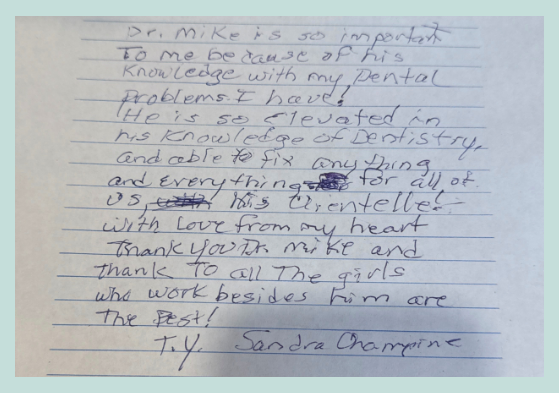 Dr. Mike is so important
To me because of his
Knowledge with my Dental
Problems I have!
He is so elevated in
his Knowledge of Dentistry,
and able to fix anything
and everything for all of
us, his Clientelle!
with Love from my heart
Thank you Dr. Mike and
thank To all The girls
who work besides him are
The Best!
T.Y. Sandra Champine